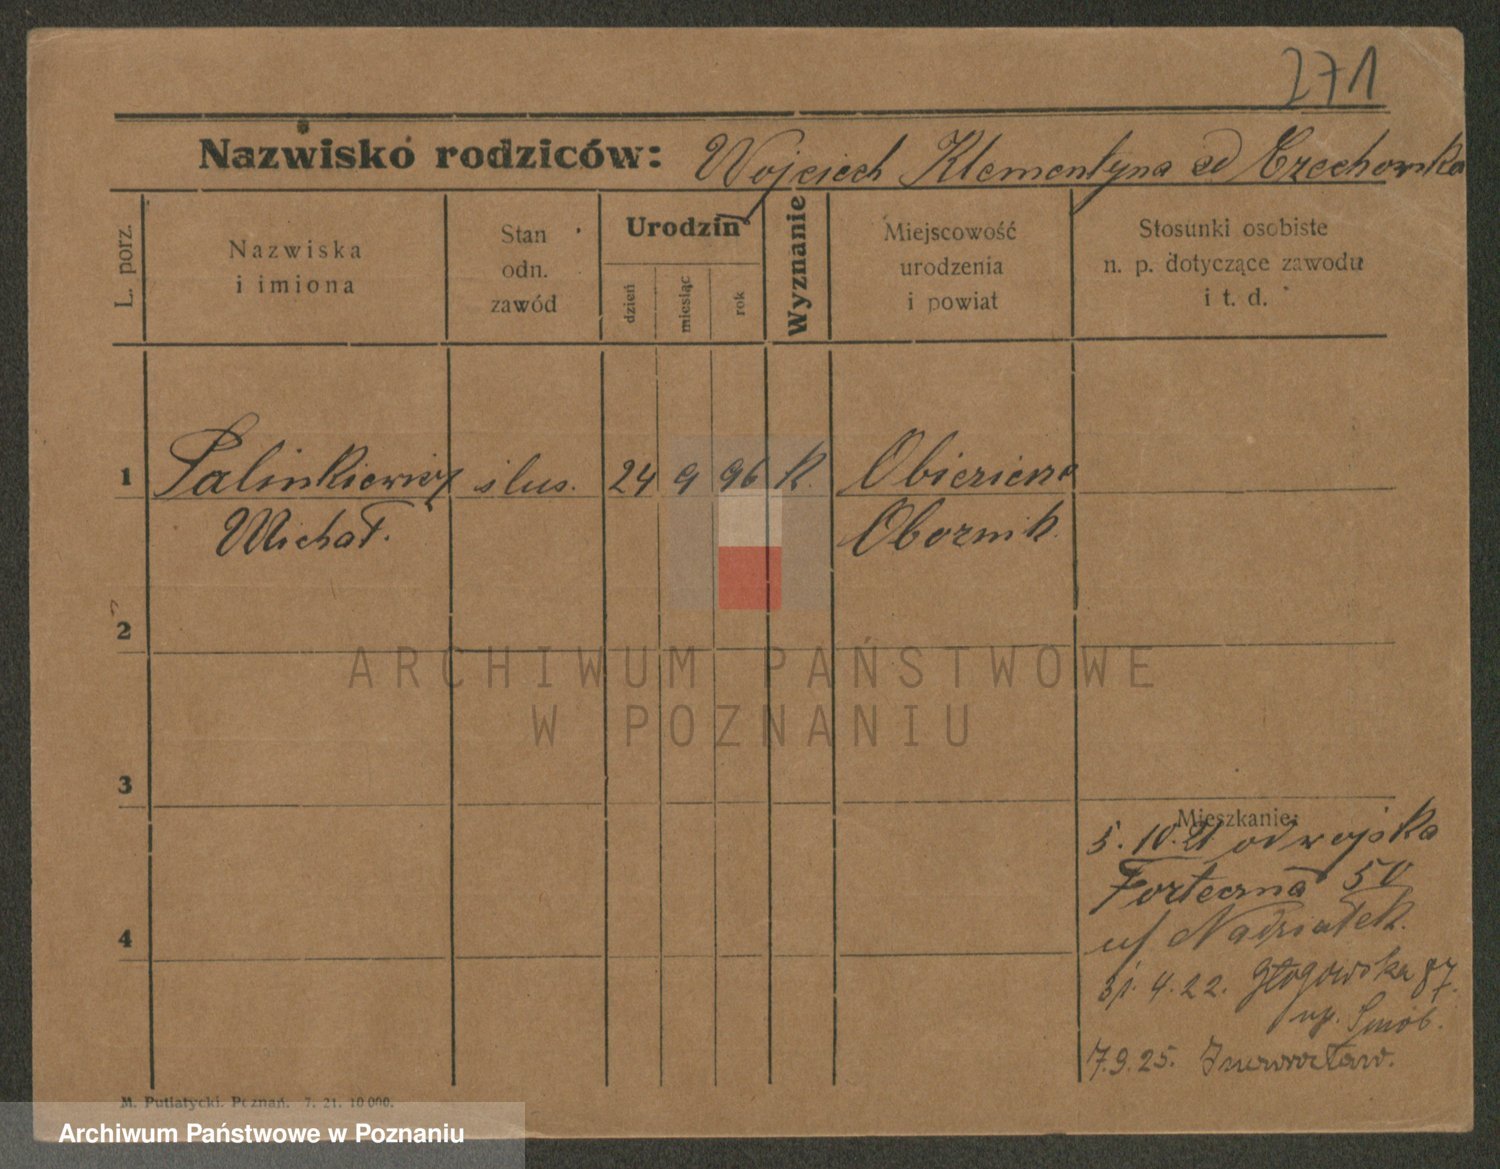 271
Nazwisko rodziców: Wojciech Klementyna zd Czechowska
L. porz.
Nazwiska
i imiona
Stan
odn.
zawód
Urodzin
dzień
miesiąc
rok
Wyznanie
Miejscowość
urodzenia
i powiat
Stosunki osobiste
n. p. dotyczące zawodu
i t. d.
1 Palinkiewicz ślus. 24 9 96 k. Obierzicza
Michał. Obornik.
2
ARCHIWUM PAŃSTWOWE
W POZNANIU
3
Mieszkanie:
5.10.21 od wojska
Forteczna 50
u/ Nadziałek.
4
4.22. Głogowska 87.
7.9.25. Inowrocław.
M. Putiatycki. Poznań. 7. 21. 10 000.
Archiwum Państwowe w Poznaniu